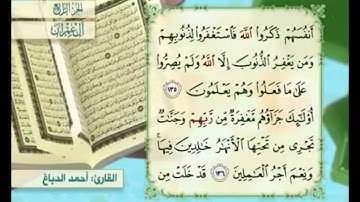 الجزء الرابع
آل عمران
أَنفُسَهُمْ ذَكَرُوا۟ ٱللَّهَ فَٱسْتَغْفَرُوا۟ لِذُنُوبِهِمْ
وَمَن يَغْفِرُ ٱلذُّنُوبَ إِلَّا ٱللَّهُ وَلَمْ يُصِرُّوا۟
عَلَىٰ مَا فَعَلُوا۟ وَهُمْ يَعْلَمُونَ ١٣٥
أُو۟لَـٰٓئِكَ جَزَآؤُهُم مَّغْفِرَةٌ مِّن رَّبِّهِمْ وَجَنَّـٰتٌ
تَجْرِى مِن تَحْتِهَا ٱلْأَنْهَـٰرُ خَـٰلِدِينَ فِيهَا ۚ
وَنِعْمَ أَجْرُ ٱلْعَـٰمِلِينَ ١٣٦ قَدْ خَلَتْ مِن
القارئ: أحمد الدباغ